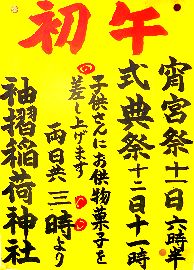 初午
宵宮祭十一日六時半
式典祭十二日十一時
子供さんにお供物菓子を
差し上げます
両日共三時より
袖摺稲荷神社